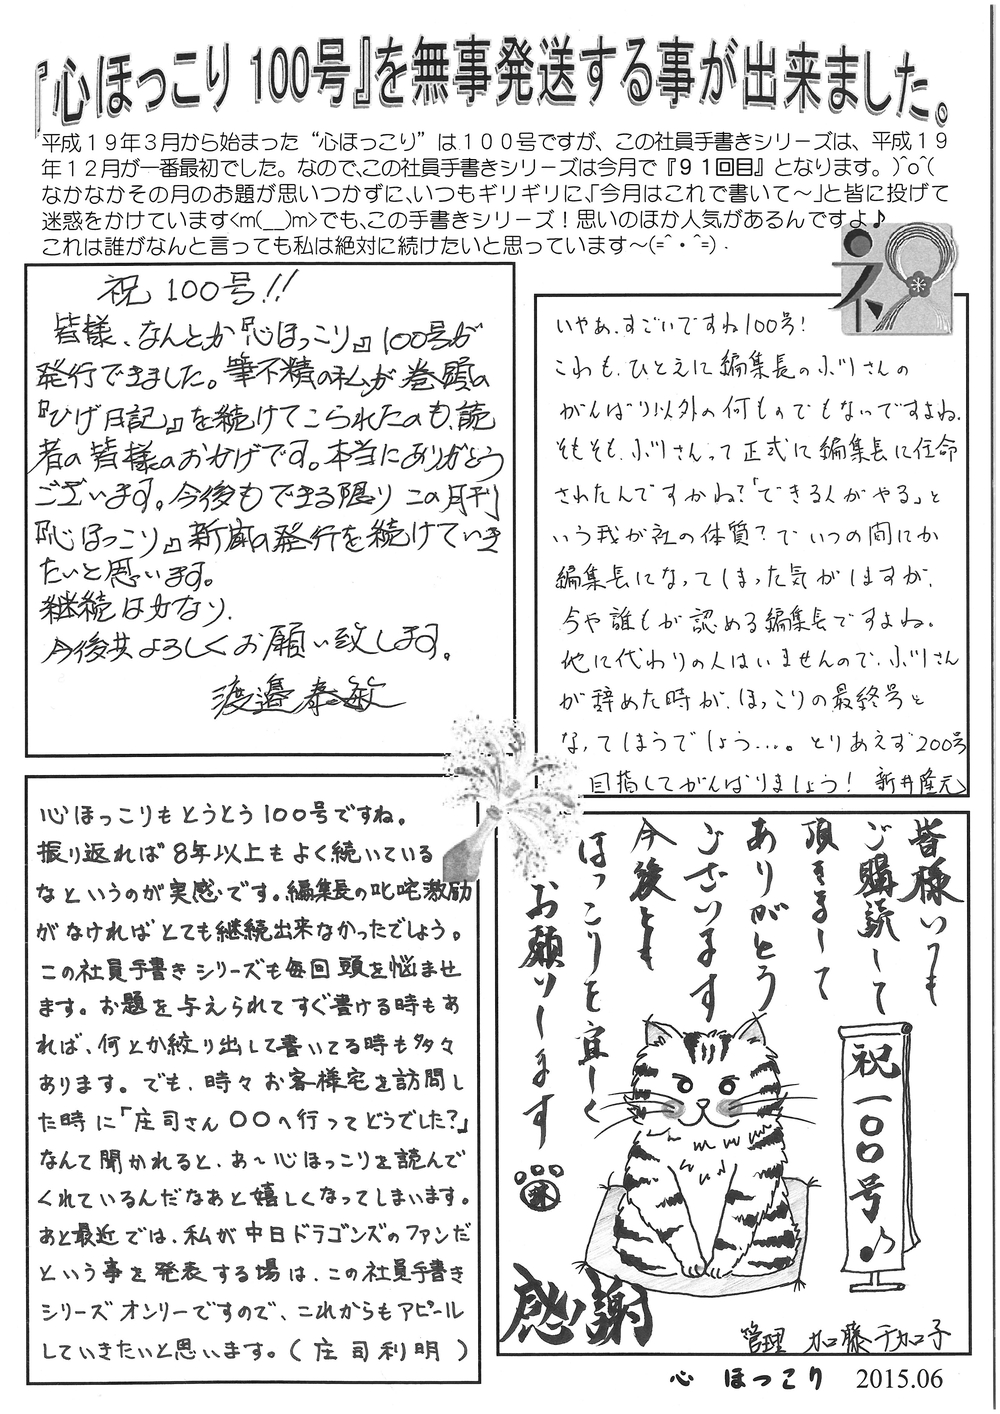 『心ほっこり100号』を無事発送する事が出来ました。
平成１９年３月から始まった“心ほっこり”は１００号ですが、この社員手書きシリーズは、平成１９
年１２月が一番最初でした。なので、この社員手書きシリーズは今月で『９１回目』となります。)^o^(
なかなかその月のお題が思いつかずに、いつもギリギリに、「今月はこれで書いて～」と皆に投げて
迷惑をかけています<m(__)m>でも、この手書きシリーズ！思いのほか人気があるんですよ♪
これは誰がなんと言っても私は絶対に続けたいと思っています～(=^・^=)．
祝
祝 100号!!
皆様、なんとか『心ほっこり』100号が
発行できました。筆不精の私が巻頭の
『ひげ日記』を続けてこられたのも、読
者の皆様のおかげです。本当にありがとう
ございます。今後もできる限りこの月刊
『心ほっこり』新聞の発行を続けていき
たいと思います。
継続は力なり、
今後共よろしくお願い致します。
渡邉泰敏
いやぁ、すごいですね100号!
これも、ひとえに編集長の小川さんの
がんばり以外の何ものでもないですよね。
そもそも、小川さんって正式に編集長に任命
されたんですかね?「できる人がやる」と
いう我が社の体質?で いつの間にか
編集長になってしまった気がしますが、
今や誰もが認める編集長ですよね。
他に代わりの人はいませんので、小川さん
が辞めた時が、ほっこりの最終号と
なってしまうでしょう…。とりあえず200号
目指してがんばりましょう! 新井隆元
心ほっこりもとうとう100号ですね。
振り返れば8年以上もよく続いている
なというのが実感です。編集長の叱咤激励
がなければとても継続出来なかったでしょう。
この社員手書きシリーズも毎回頭を悩ませ
ます。お題を与えられてすぐ書ける時もあ
れば、何とか絞り出して書いてる時も多々
あります。でも、時々お客様宅を訪問し
た時に「庄司さん〇〇へ行ってどうでした?」
なんて聞かれると、あ～心ほっこりを読んで
くれているんだなあと嬉しくなってしまいます。
あと最近では、私が中日ドラゴンズのファンだ
という事を発表する場は、この社員手書き
シリーズオンリーですので、これからもアピール
していきたいと思います。(庄司利明)
皆様いつも
ご購読して
頂きまして
ありがとう
ございます
今後とも
ほっこりを宜しく
お願いします
祝一〇〇号♪
感謝
管理 加藤千加子
心 ほっこり 2015.06